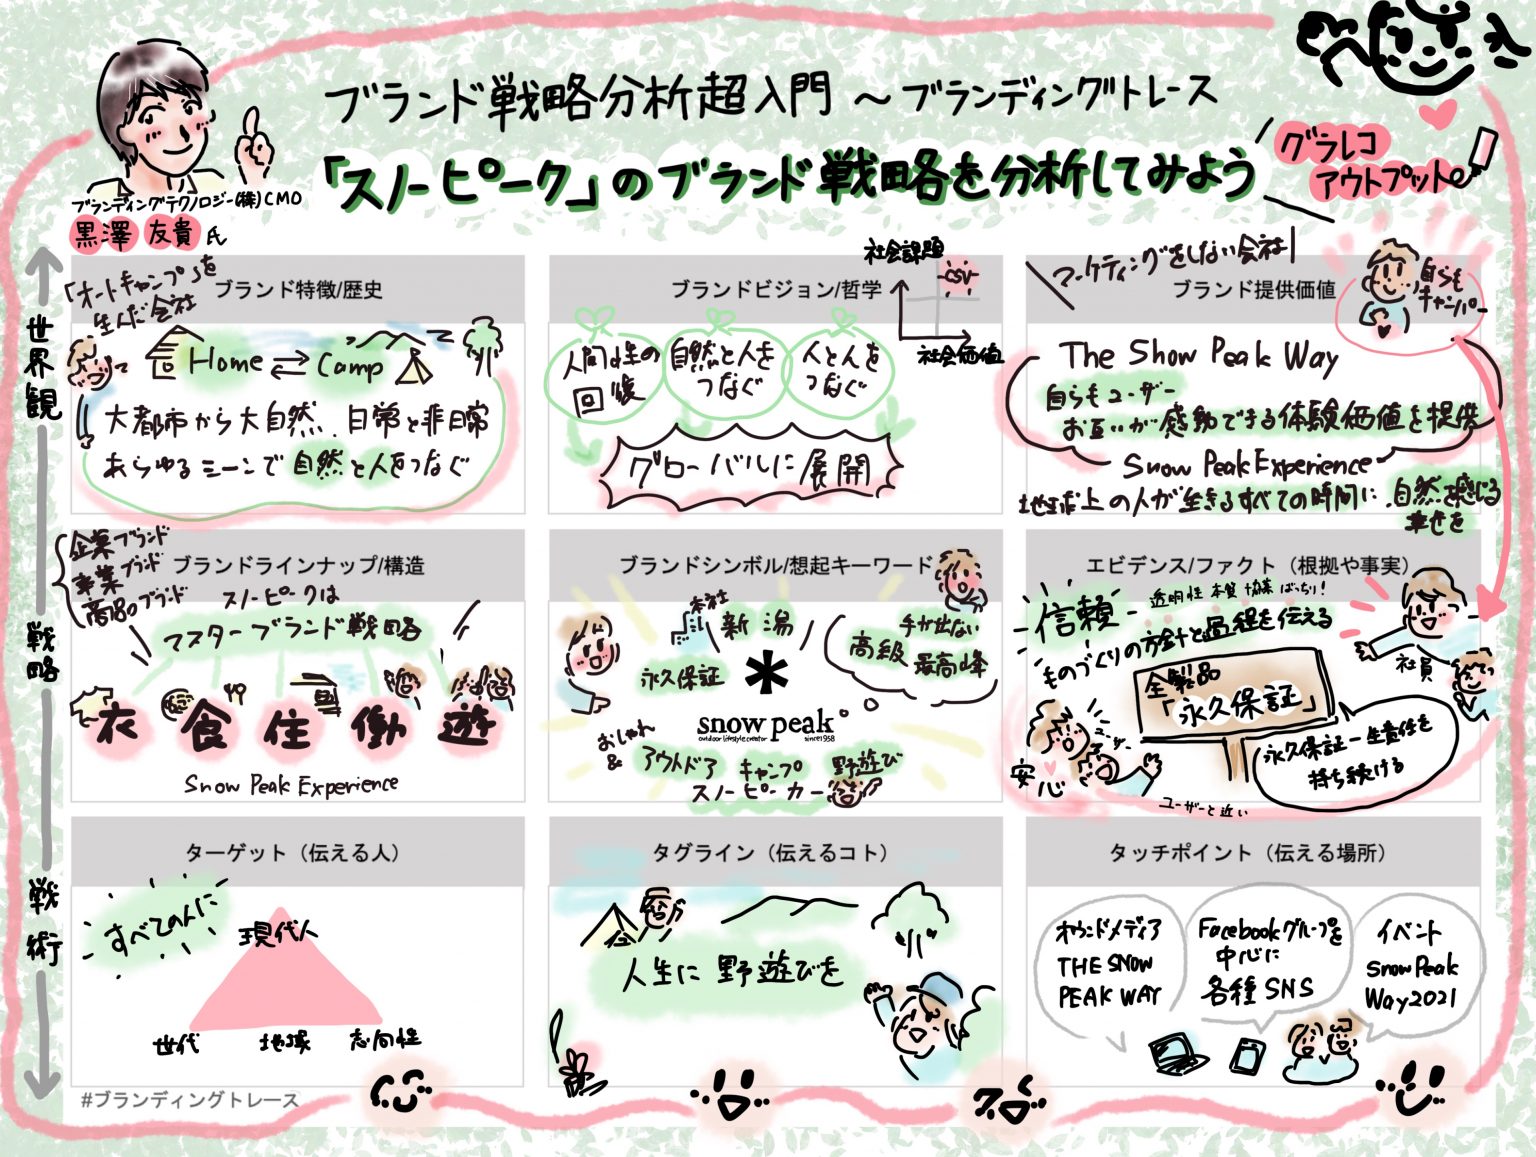 ブランド戦略分析超入門 〜ブランディングトレース
「スノーピーク」のブランド戦略を分析してみよう
グラレコ
アウトプット
ブランディングテクノロジー(株)CMO
黒澤 友貴 氏
世界観
戦略
戦術
「オートキャンプ」を
生んだ会社
ブランド特徴/歴史
Home ⇄ Camp
大都市から大自然、日常と非日常
あらゆるシーンで自然と人をつなぐ
ブランドビジョン/哲学
社会課題
CSV
社会価値
人間性の
回復
自然と人を
つなぐ
人と人を
つなぐ
グローバルに展開
マーケティングをしない会社
ブランド提供価値
自らも
キャンパー
The Snow Peak Way
自らもユーザー
お互いが感動できる体験価値を提供
Snow Peak Experience
地球上の人が生きるすべての時間に自然を感じる
幸せを
企業ブランド
事業ブランド
商品ブランド
ブランドラインナップ/構造
スノーピークは
マスターブランド戦略
衣 食 住 働 遊
Snow Peak Experience
ブランドシンボル/想起キーワード
本社
新潟
永久保証
手が出ない
高級 最高峰
snow peak
outdoor lifestyle creator since1958
おしゃれ
&
アウトドア キャンプ 野遊び
スノーピーカー
エビデンス/ファクト（根拠や事実）
信頼
透明性 本質 協業 ばっちり！
ものづくりの方針と過程を伝える
社員
全製品
「永久保証」
ユーザー
安心
永久保証＝一生責任を
持ち続ける
ユーザーと近い
ターゲット（伝える人）
すべての人に
現代人
世代 地域 志向性
タグライン（伝えるコト）
人生に 野遊びを
タッチポイント（伝える場所）
オウンドメディア
THE SNOW
PEAK WAY
Facebookグループを
中心に
各種SNS
イベント
Snow Peak
Way2021
#ブランディングトレース